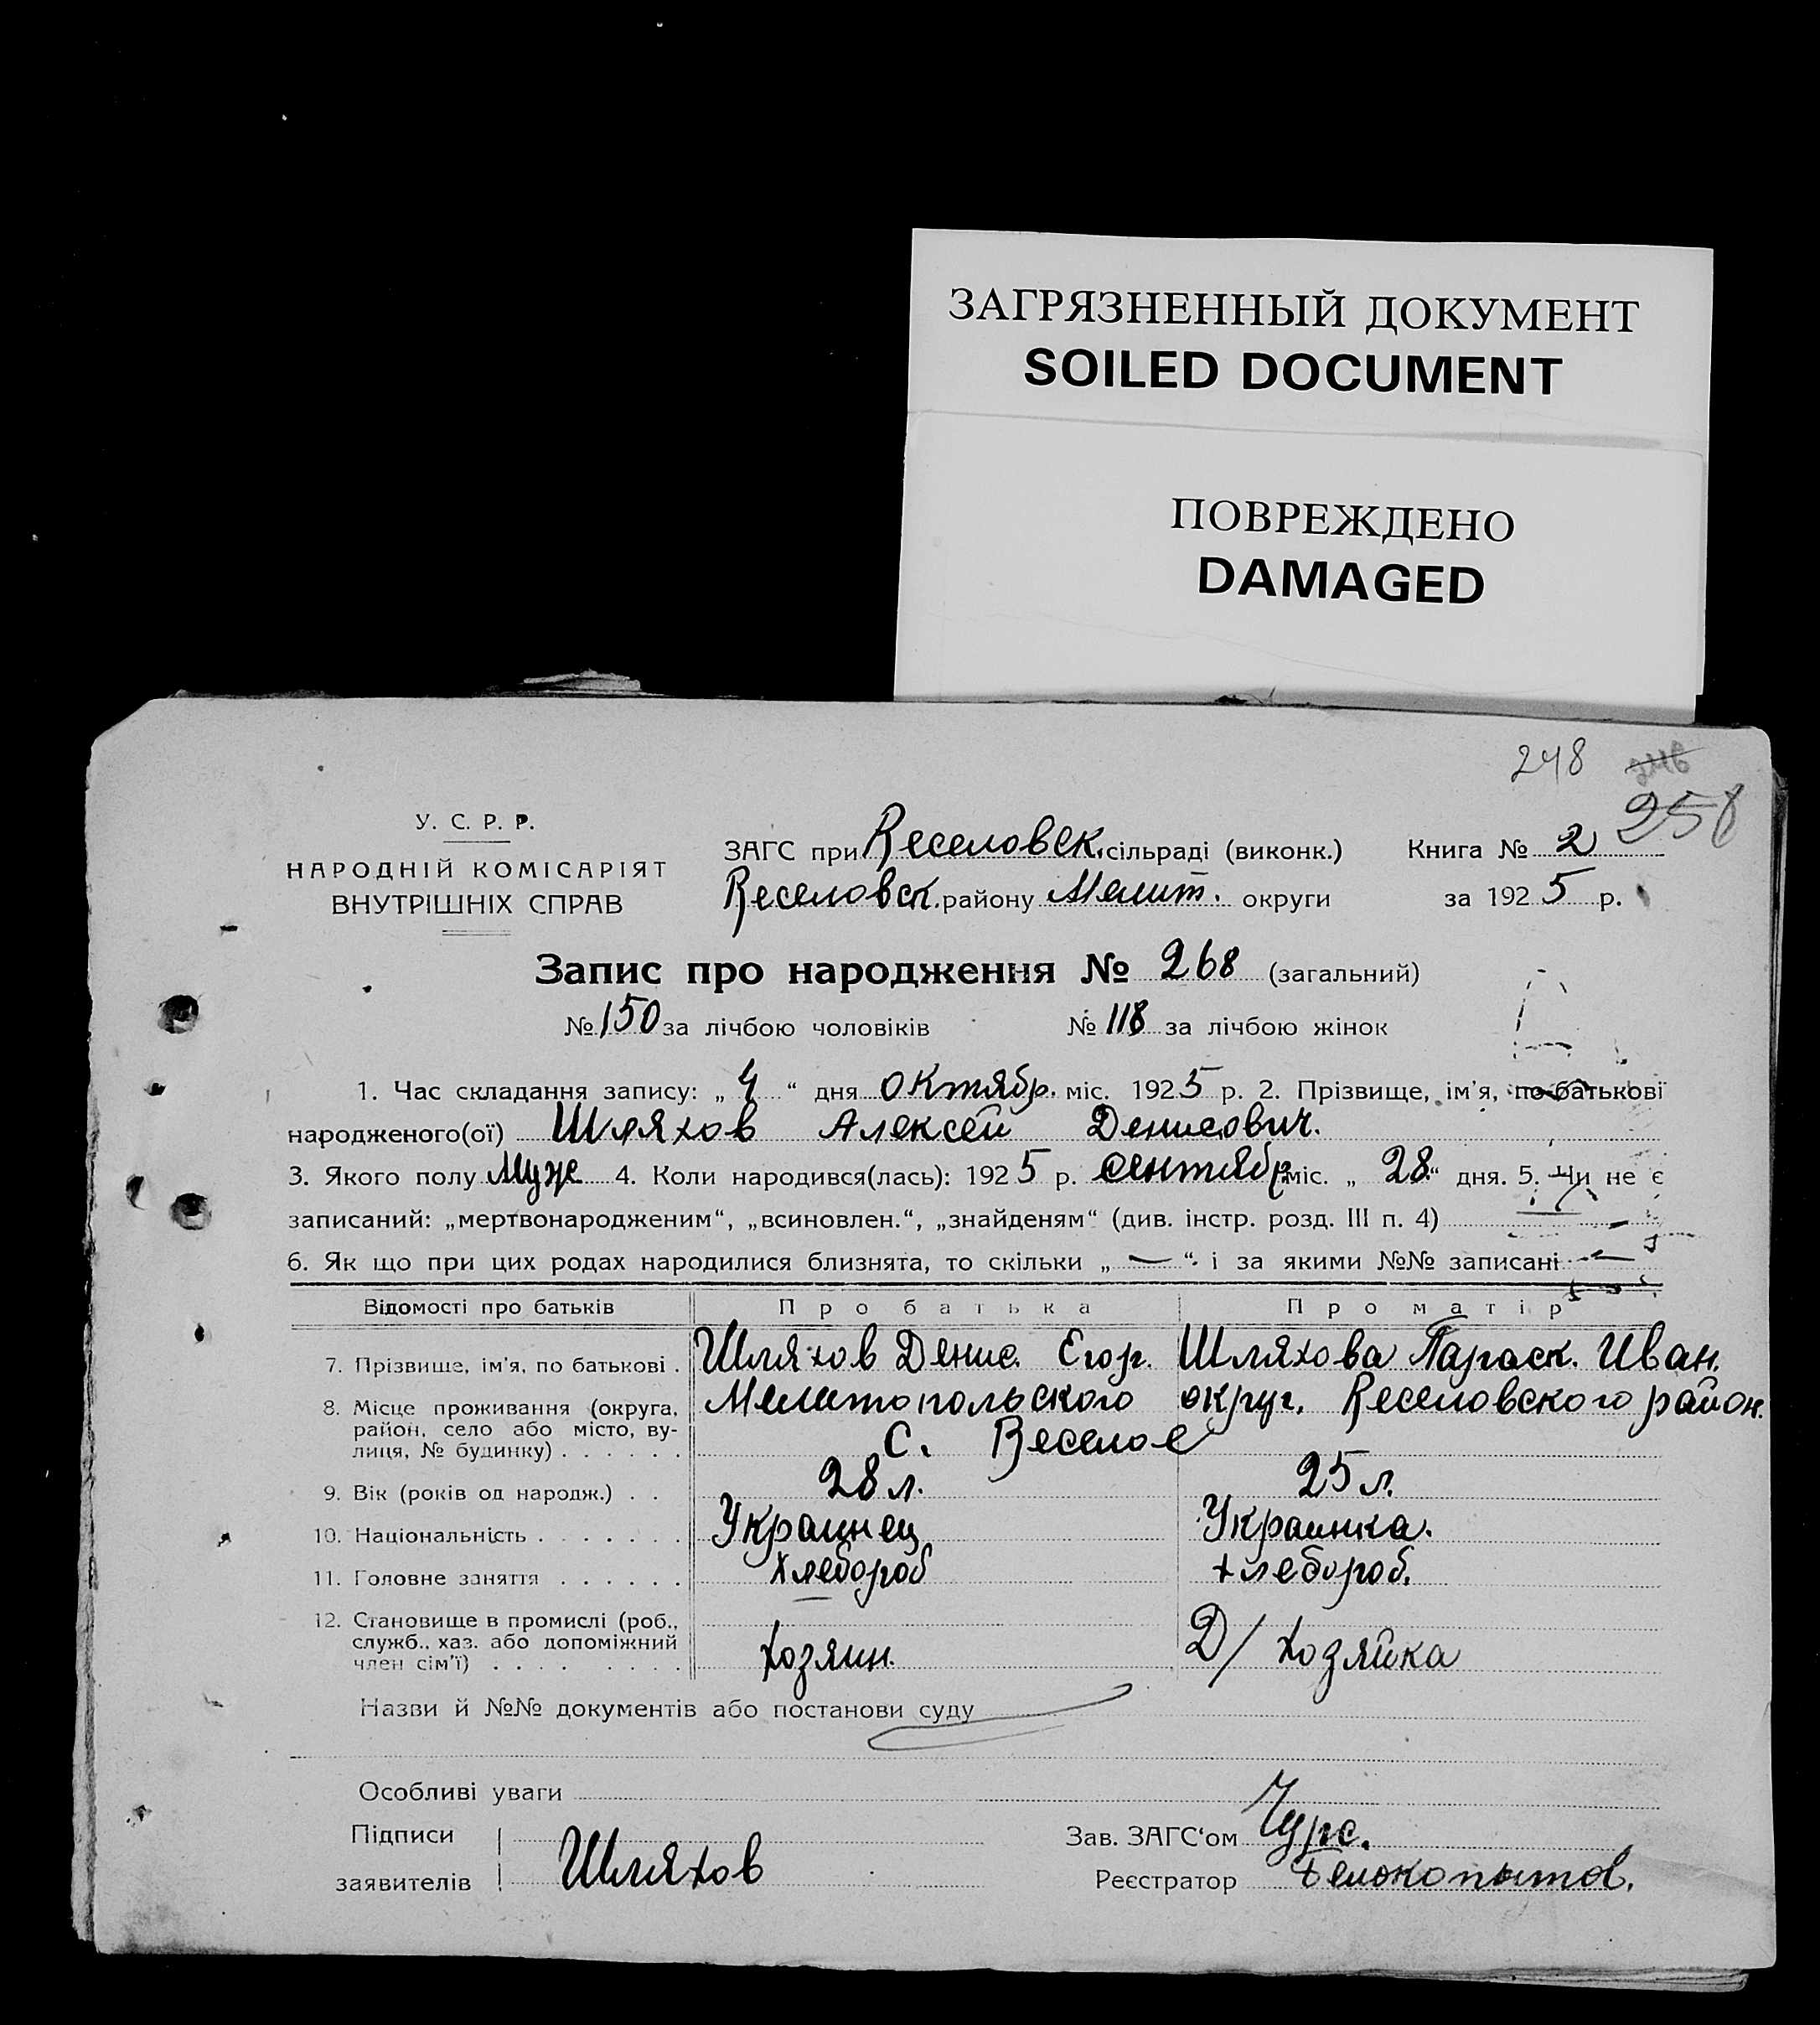 ЗАГРЯЗНЕННЫЙ ДОКУМЕНТ
SOILED DOCUMENT
ПОВРЕЖДЕНО
DAMAGED
248 246
258
У. С. Р. Р.
НАРОДНІЙ КОМІСАРІЯТ
ВНУТРІШНІХ СПРАВ
ЗАГС при Веселовск. сільраді (виконк.) Книга № 2
Веселовск. району Мелит. округи за 1925 р.
Запис про народження № 268 (загальний)
№ 150 за лічбою чоловіків № 118 за лічбою жінок
1. Час складання запису: „ 4 “ дня октябр. міс. 1925 р. 2. Прізвище, ім'я, по-батькові
народженого(ої) Шляхов Алексей Денисович.
3. Якого полу Муж 4. Коли народився(лась): 1925 р. сентябр міс. „ 28 “ дня. 5. Чи не є
записаний: „мертвонародженим“, „всиновлен.“, „знайденям“ (див. інстр. розд. III п. 4) —
6. Як що при цих родах народилися близнята, то скільки „ — “ і за якими №№ записані —
Відомості про батьків Про батька Про матір
7. Прізвище, ім'я, по батькові . Шляхов Денис. Егор. Шляхова Параск. Иван.
8. Місце проживання (округа, Мелитопольского округ. Веселовского район.
район, село або місто, ву-
лиця, № будинку) . . . . . . С. Веселое
9. Вік (років од народж.) . . 28 л. 25 л.
10. Національність . . . . . . . Украинец Украинка.
11. Головне заняття . . . . . . хлебороб хлебороб.
12. Становище в промислі (роб.,
служб., хаз. або допоміжний
член сім'ї) . . . . . . . . . хозяин. Д/ хозяйка
Назви й №№ документів або постанови суду
Особливі уваги
Підписи
заявителів Шляхов
Зав. ЗАГС‘ом
Реєстратор Белокопытов.